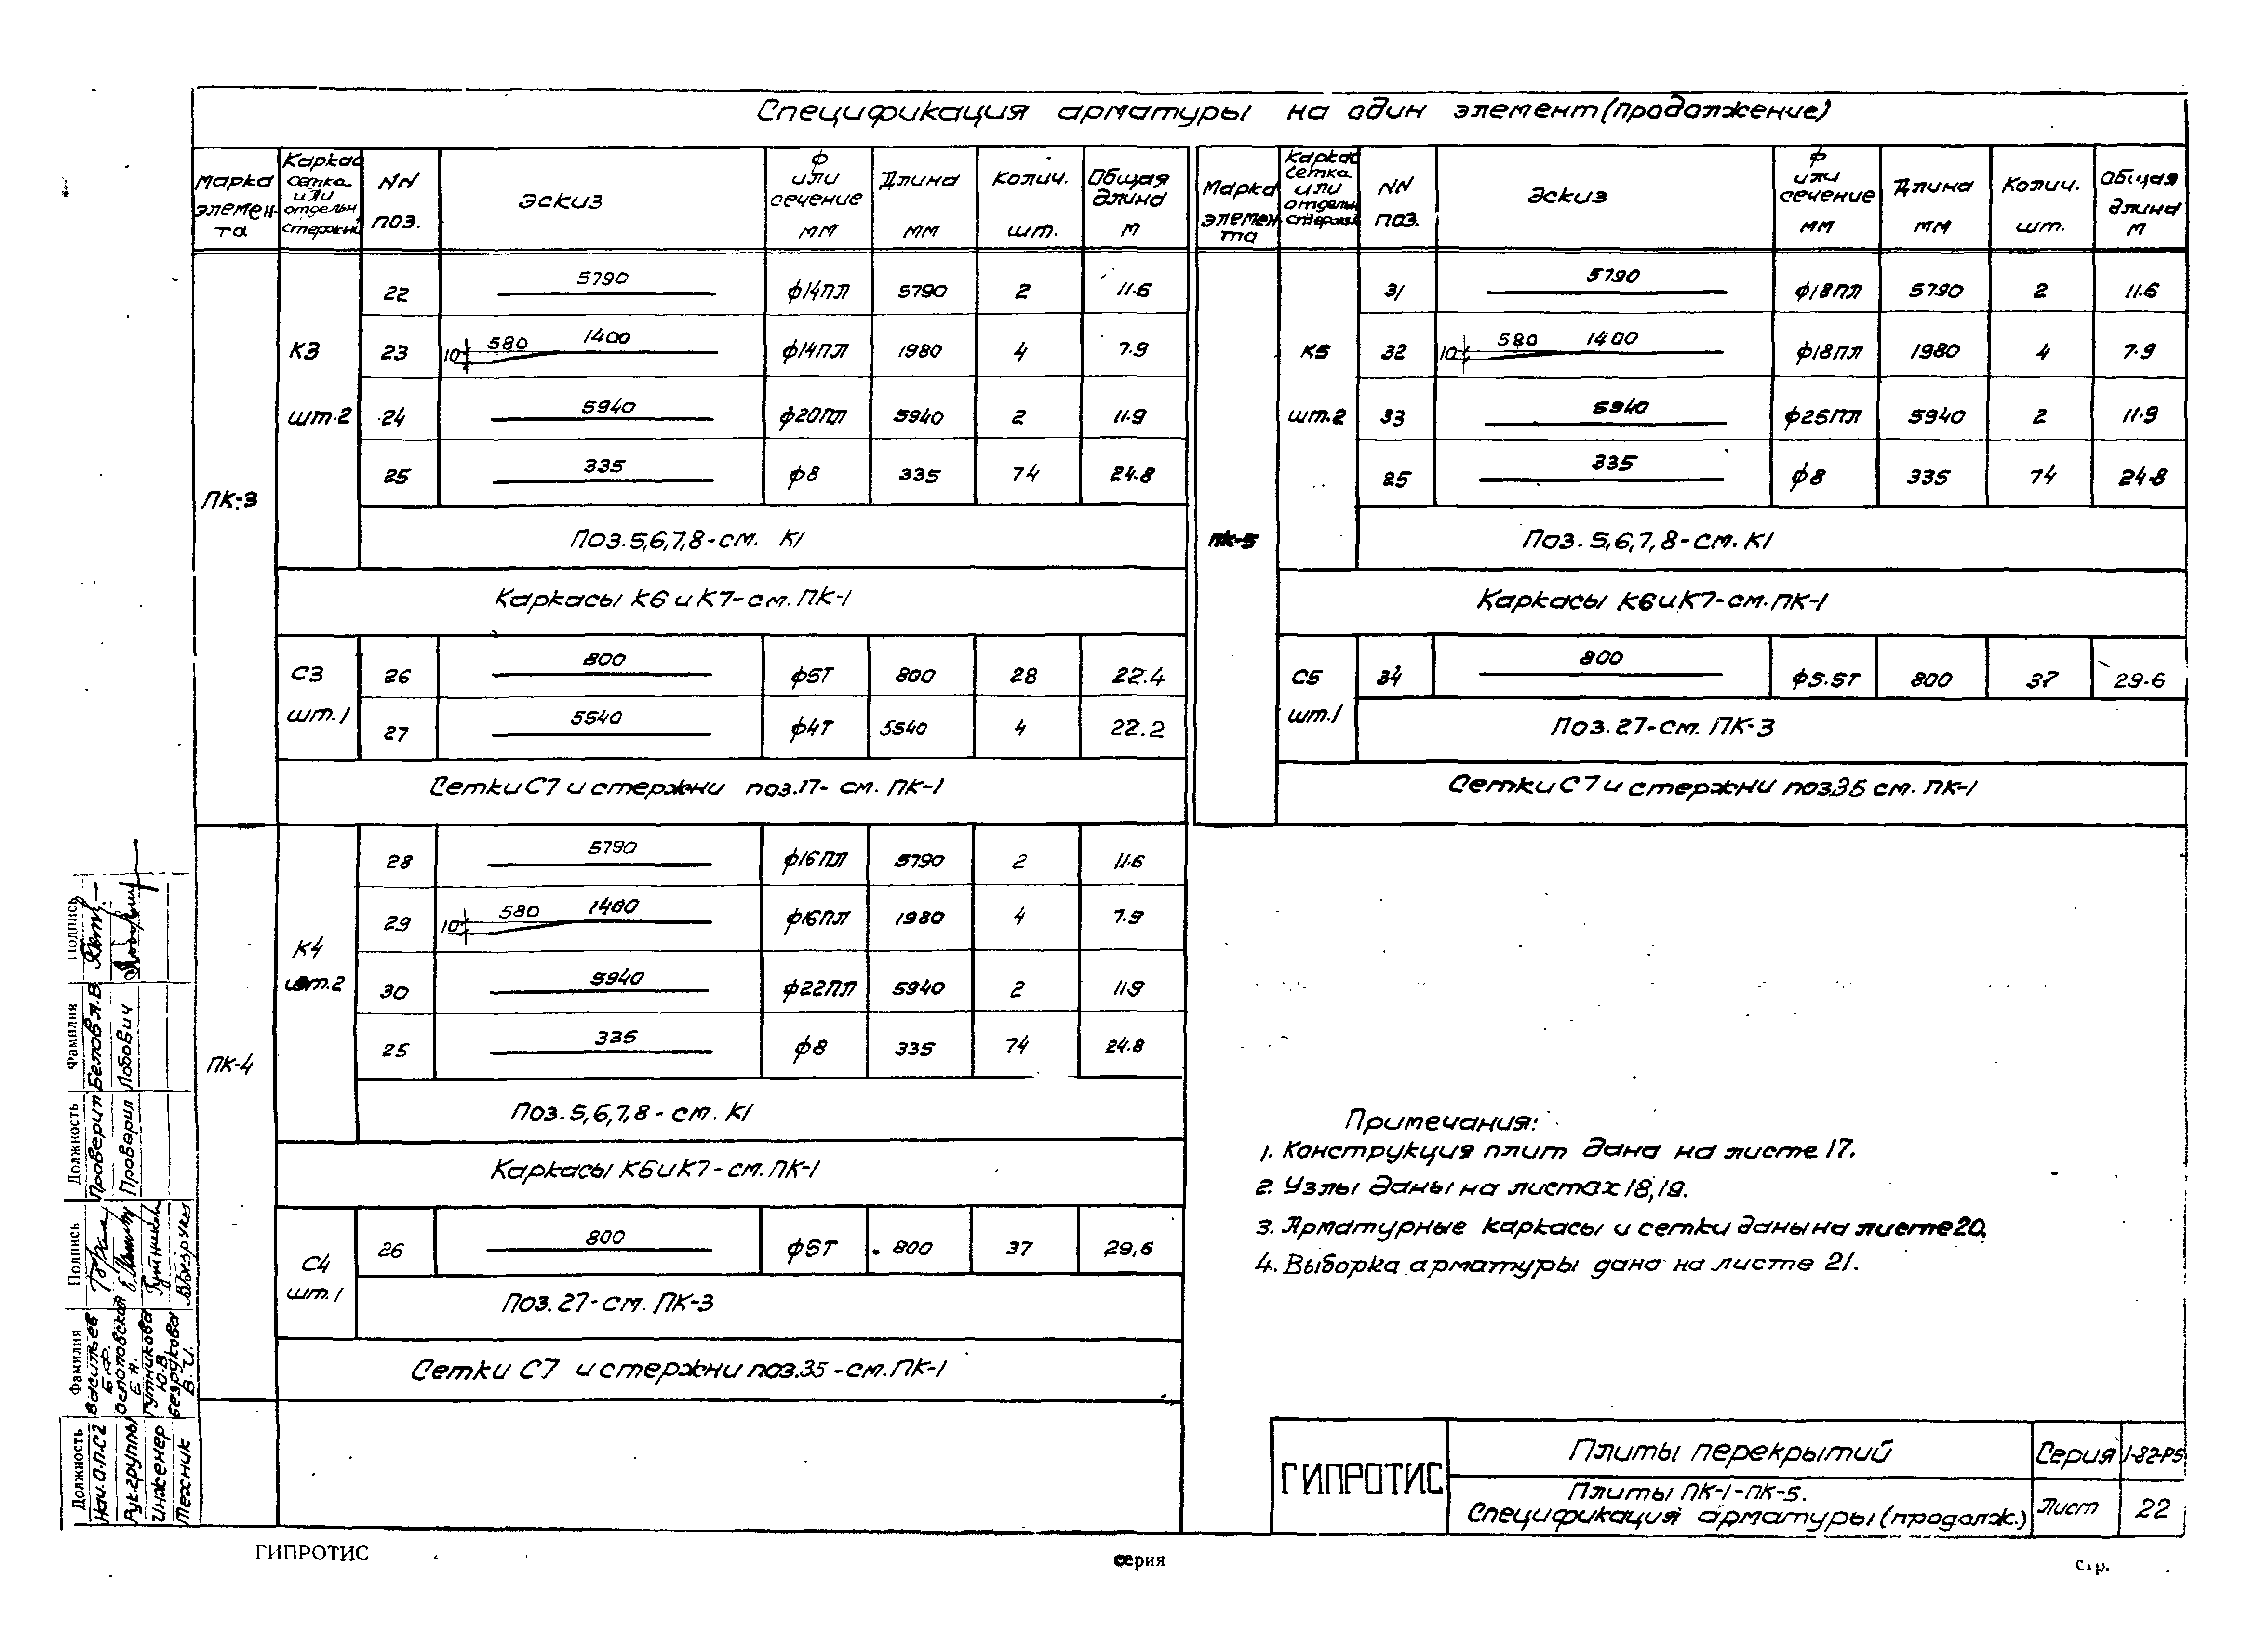 Спецификация арматуры на один элемент (продолжение)
Марка элемен-та | Каркас сетка или отдельн стержни | NN поз. | Эскиз | ф или сечение мм | Длина мм | Колич. шт. | Общая длина м
ПК-3
К3 шт.2
22 | 5790 | ф14ПЛ | 5790 | 2 | 11.6
23 | 10 580 1400 | ф14ПЛ | 1980 | 4 | 7.9
24 | 5940 | ф20ПЛ | 5940 | 2 | 11.9
25 | 335 | ф8 | 335 | 74 | 24.8
Поз. 5,6,7,8-см. К1
Каркасы К6 и К7-см. ПК-1
С3 шт.1
26 | 800 | ф5Т | 800 | 28 | 22.4
27 | 5540 | ф4Т | 5540 | 4 | 22.2
Сетки С7 и стержни поз.17- см. ПК-1
ПК-4
К4 шт.2
28 | 5790 | ф16ПЛ | 5790 | 2 | 11.6
29 | 10 580 1400 | ф16ПЛ | 1980 | 4 | 7.9
30 | 5940 | ф22ПЛ | 5940 | 2 | 11.9
25 | 335 | ф8 | 335 | 74 | 24.8
Поз. 5,6,7,8- см. К1
Каркасы К6 и К7- см. ПК-1
С4 шт.1
26 | 800 | ф5Т | 800 | 37 | 29,6
Поз. 27- см. ПК-3
Сетки С7 и стержни поз.35 - см. ПК-1
Марка элемен-та | Каркас сетка или отдельн стержни | NN поз. | Эскиз | ф или сечение мм | Длина мм | Колич. шт. | Общая длина м
ПК-5
К5 шт.2
31 | 5790 | ф18ПЛ | 5790 | 2 | 11.6
32 | 10 580 1400 | ф18ПЛ | 1980 | 4 | 7.9
33 | 5940 | ф25ПЛ | 5940 | 2 | 11.9
25 | 335 | ф8 | 335 | 74 | 24.8
Поз. 5,6,7,8-см. К1
Каркасы К6 и К7-см. ПК-1
С5 шт.1
34 | 800 | ф5.5Т | 800 | 37 | 29.6
Поз. 27-см. ПК-3
Сетки С7 и стержни поз35 см. ПК-1
Примечания:
1. Конструкция плит дана на листе 17.
2. Узлы даны на листах 18,19.
3. Арматурные каркасы и сетки даны на листе 20.
4. Выборка арматуры дана на листе 21.
ГИПРОТИС
Плиты перекрытий
Серия 1-82-Р5
Плиты ПК-1-ПК-5.
Спецификация арматуры (продолж.)
Лист 22
Должность Фамилия Подпись Должность Фамилия Подпись
Нач.О.П.С2 Васильев Б.Ф. Проверил Белов Л.В.
Рук.группы Ослоповская Е.А. Проверил Лобович
Инженер Гутникова Ю.В.
Техник Безрукова В.И.
ГИПРОТИС
серия
стр.